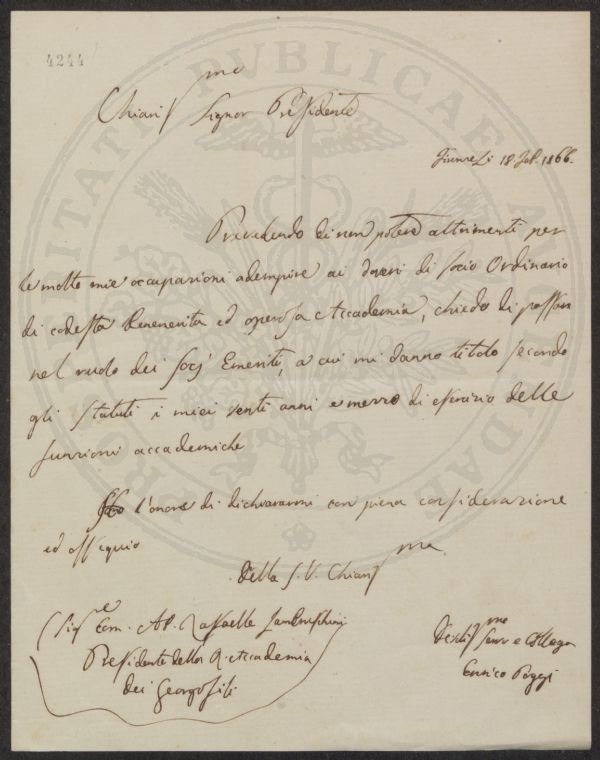 4244
Chiariss.mo Signor Presidente
Firenze li 18 Feb. 1866.
Prevedendo di non potere altrimenti per
le molte mie occupazioni adempire ai doveri di Socio Ordinario
di codesta Benemerita ed operosa Accademia, chiedo di passare
nel ruolo dei Socj Emeriti, a cui mi danno titolo secondo
gli Statuti i miei venti anni e mezzo di esercizio delle
funzioni accademiche
Ho l'onore di dichiararmi con piena considerazione
ed ossequio
Della S. V. Chiariss.ma
Sig.e Com. Ab. Raffaelle Lambruschini
Presidente della R. Accademia
dei Georgofili
Devotiss.mo Servo e Collega
Enrico Poggi
PROSPERITATI PUBLICAE AUGENDAE